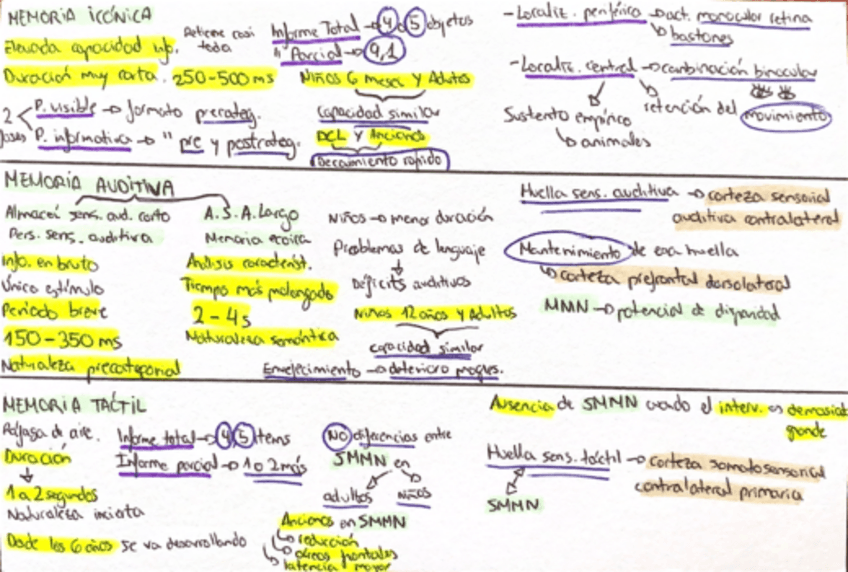 MEMORIA ICÓNICA
Elevada capacidad inf. Retiene casi toda
Duración muy corta. 250-500 ms
2 fases
P. visible → formato precateg.
P. informativa → " pre y postcateg.
Informe Total → 4 o 5 objetos
" Parcial → 9,1
Niños 6 meses y Adultos
capacidad similar
DCL y Ancianos
Decaimiento rápido
- Localiz. periférica → act. monocular retina
→ bastones
- Localiz. central → combinación binocular
Sustento empírico
→ animales
retención del movimiento
MEMORIA AUDITIVA
Almacén sens. aud. corto
Pers. sens. auditiva
Info. en bruto
Único estímulo
Periodo breve
150-350 ms
Naturaleza precategorial
A.S.A. Largo
Memoria ecoica
Análisis característ.
Tiempo más prolongado
2-4s
Naturaleza semántica
Niños → menor duración
Problemas de lenguaje
↓
Déficits auditivos
Niños 12 años y Adultos
capacidad similar
Envejecimiento → deterioro progres.
Huella sens. auditiva → corteza sensorial
auditiva contralateral
Mantenimiento de esa huella
→ corteza prefrontal dorsolateral
MMN → potencial de disparidad
MEMORIA TÁCTIL
Ráfaga de aire.
Duración
↓
1 a 2 segundos
Naturaleza incierta
Desde los 6 años se va desarrollando
Informe total → 4, 5 ítems
Informe parcial → 1 o 2 más
NO diferencias entre
SMMN en
adultos niños
Ancianos en SMMN
→ reducción
→ áreas frontales
→ latencia mayor
Ausencia de SMMN cuando el interv. es demasiado
grande
Huella sens. táctil → corteza somatosensorial
contralateral primaria
SMMN